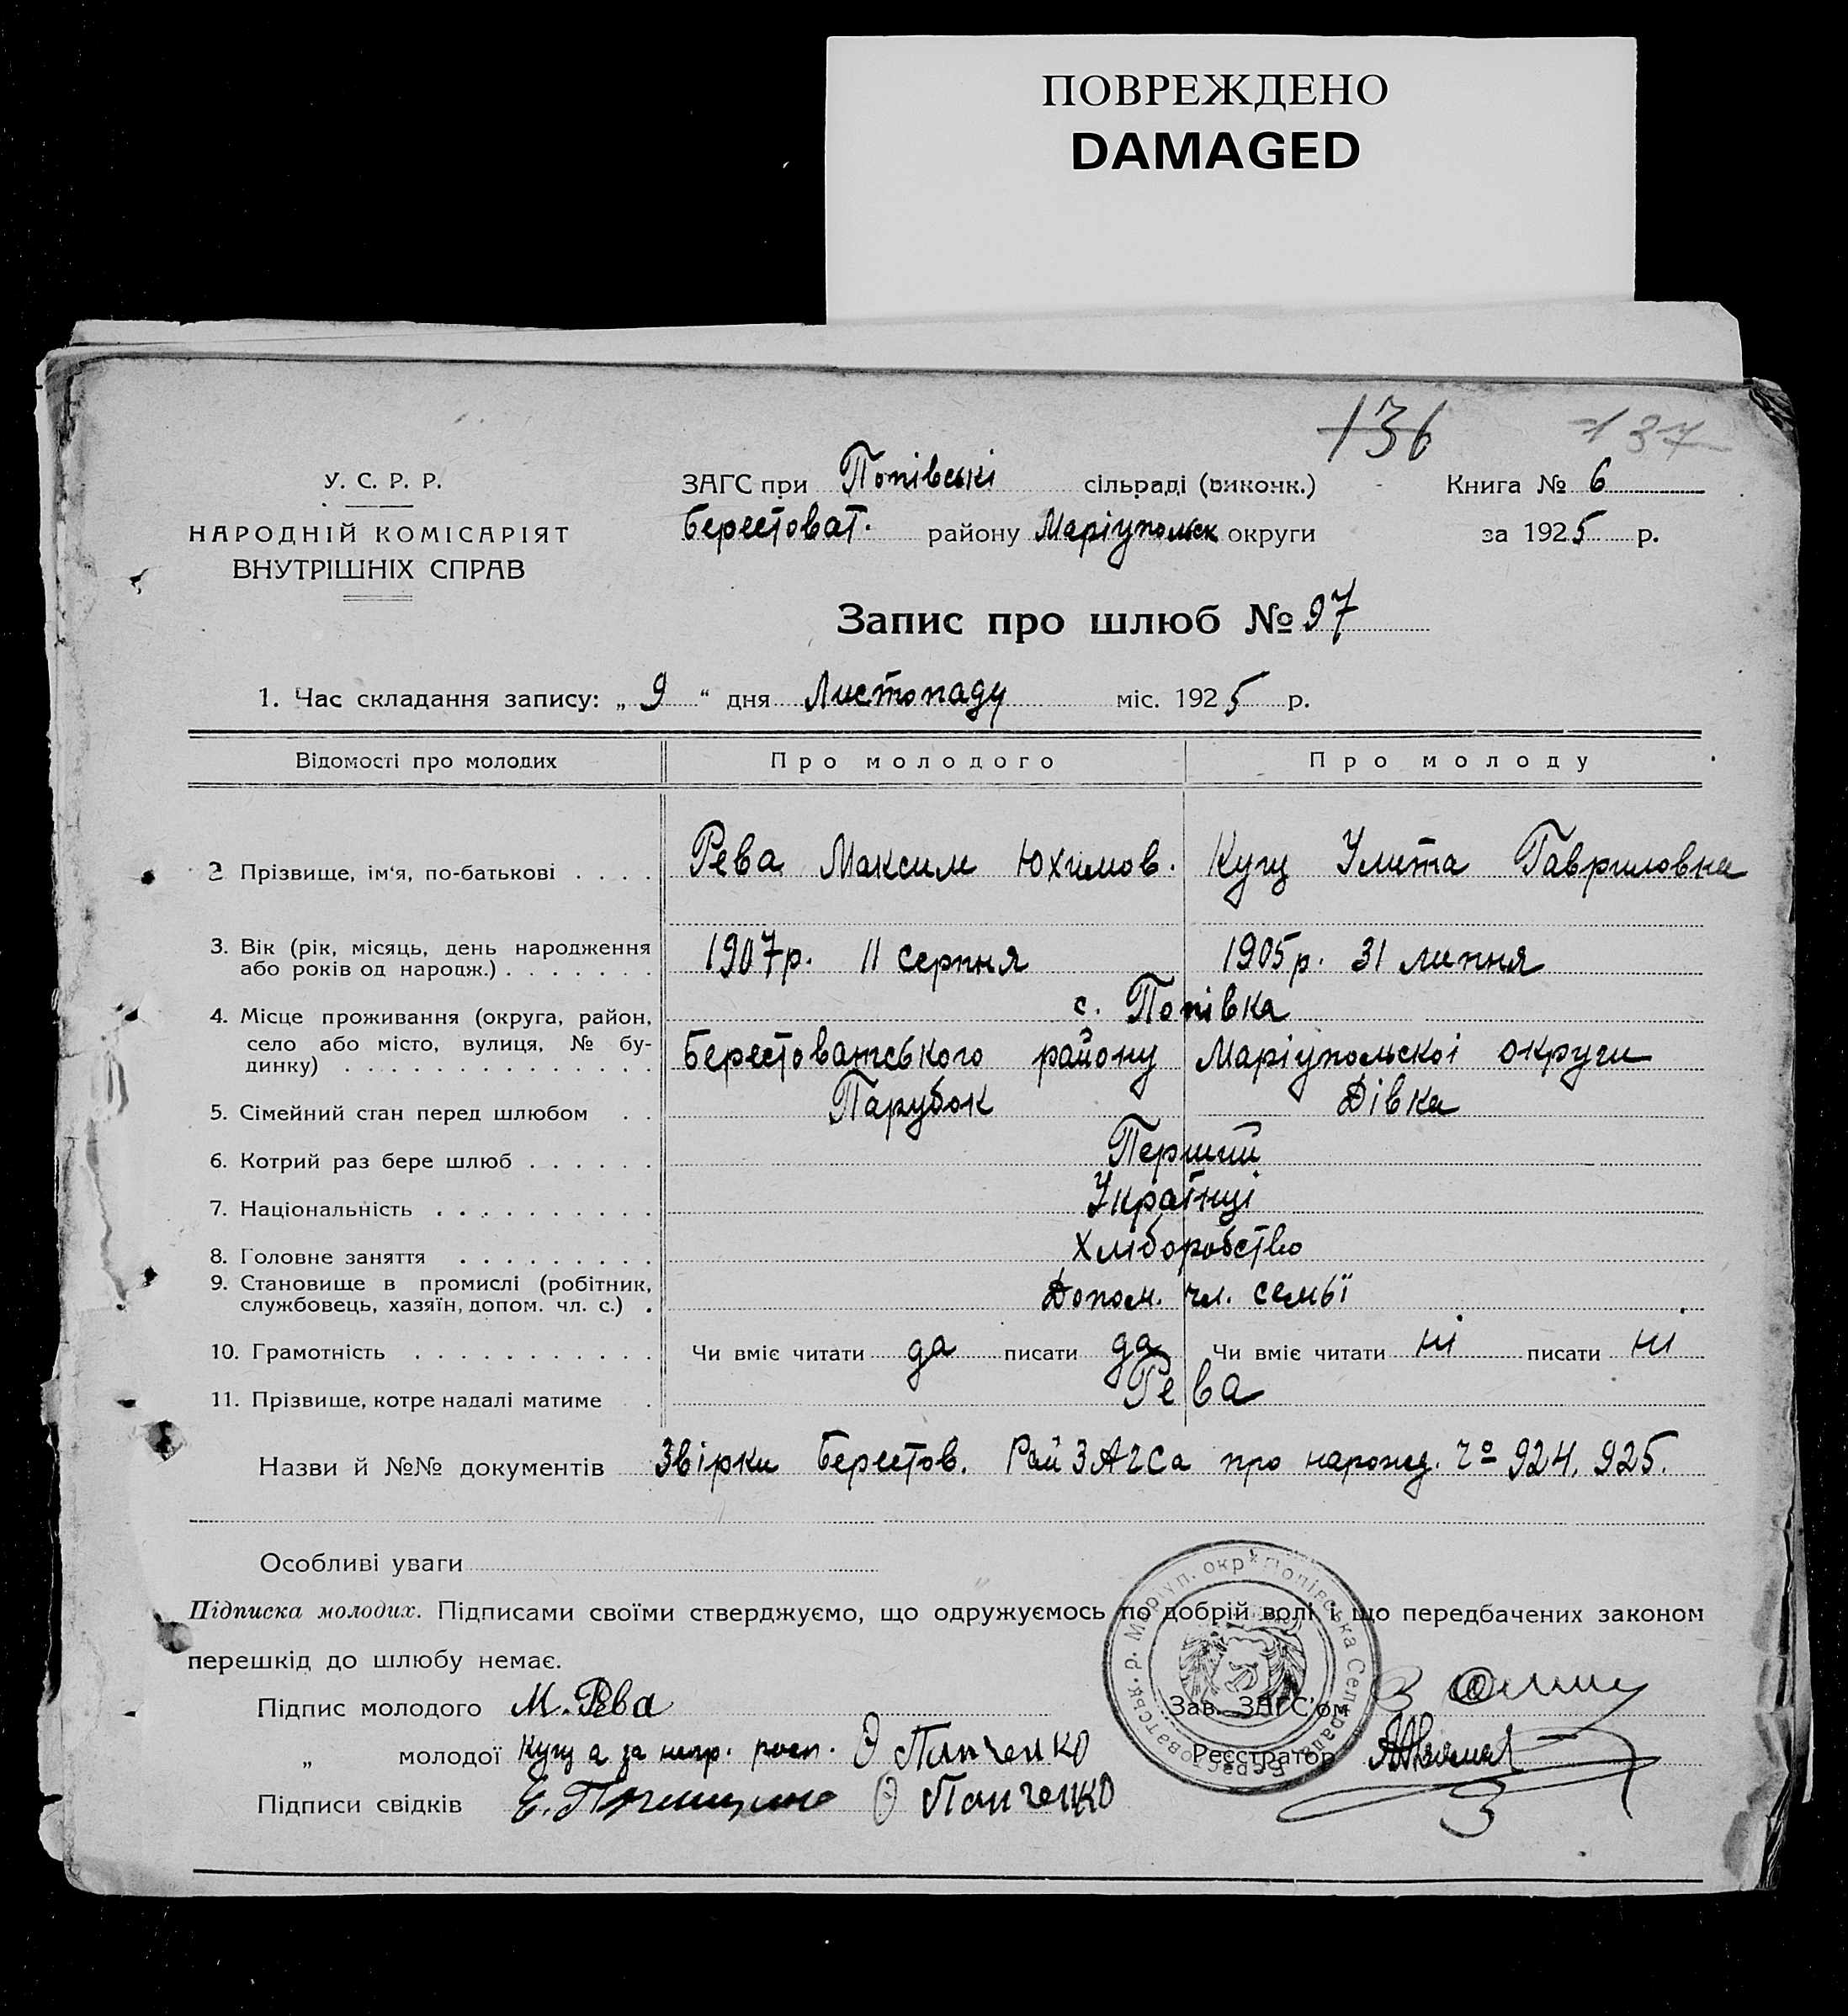 ПОВРЕЖДЕНО
DAMAGED
136 137
У. С. Р. Р.
НАРОДНІЙ КОМІСАРІЯТ
ВНУТРІШНІХ СПРАВ
ЗАГС при Попівські сільраді (виконк.)
Берестоват. району Маріупольск округи
Книга № 6
за 1925 р.
Запис про шлюб № 97
1. Час складання запису: „ 9 “ дня Листопаду міс. 1925 р.
Відомості про молодих Про молодого Про молоду
2 Прізвище, ім'я, по-батькові . . . . Рева Максим Юхимов. Куц Улита Гавриловна
3. Вік (рік, місяць, день народження
або років од народж.) . . . . . . . 1907р. 11 серпня 1905р. 31 липня
4. Місце проживання (округа, район, с. Попівка
село або місто, вулиця, № бу-
динку) . . . . . . . . . . . . . . Берестоватського району Маріупольскоі округи
5. Сімейний стан перед шлюбом . . Парубок Дівка
6. Котрий раз бере шлюб . . . . . . Перший
7. Національність . . . . . . . . . . Українці
8. Головне заняття . . . . . . . . . Хліборобство
9. Становище в промислі (робітник,
службовець, хазяїн, допом. чл. с.) . Допом. чл. семьї
10. Грамотність . . . . . . . . . . . Чи вміє читати да писати да Чи вміє читати ні писати ні
11. Прізвище, котре надалі матиме . Рева
Назви й №№ документів Звірки Берестов. РайЗАГСа про нарожд. 924. 925.
Особливі уваги
Підписка молодих. Підписами своїми стверджуємо, що одружуємось по добрій волі і що передбачених законом
перешкід до шлюбу немає.
Підпис молодого М. Рева
Зав. ЗАГС'ом
„ молодої Куц а за непр. росп. Панченко
Реєстратор
Підписи свідків Панченко
Маріуп. окр. * Попівська Сельрада * Берестоватськ. р.